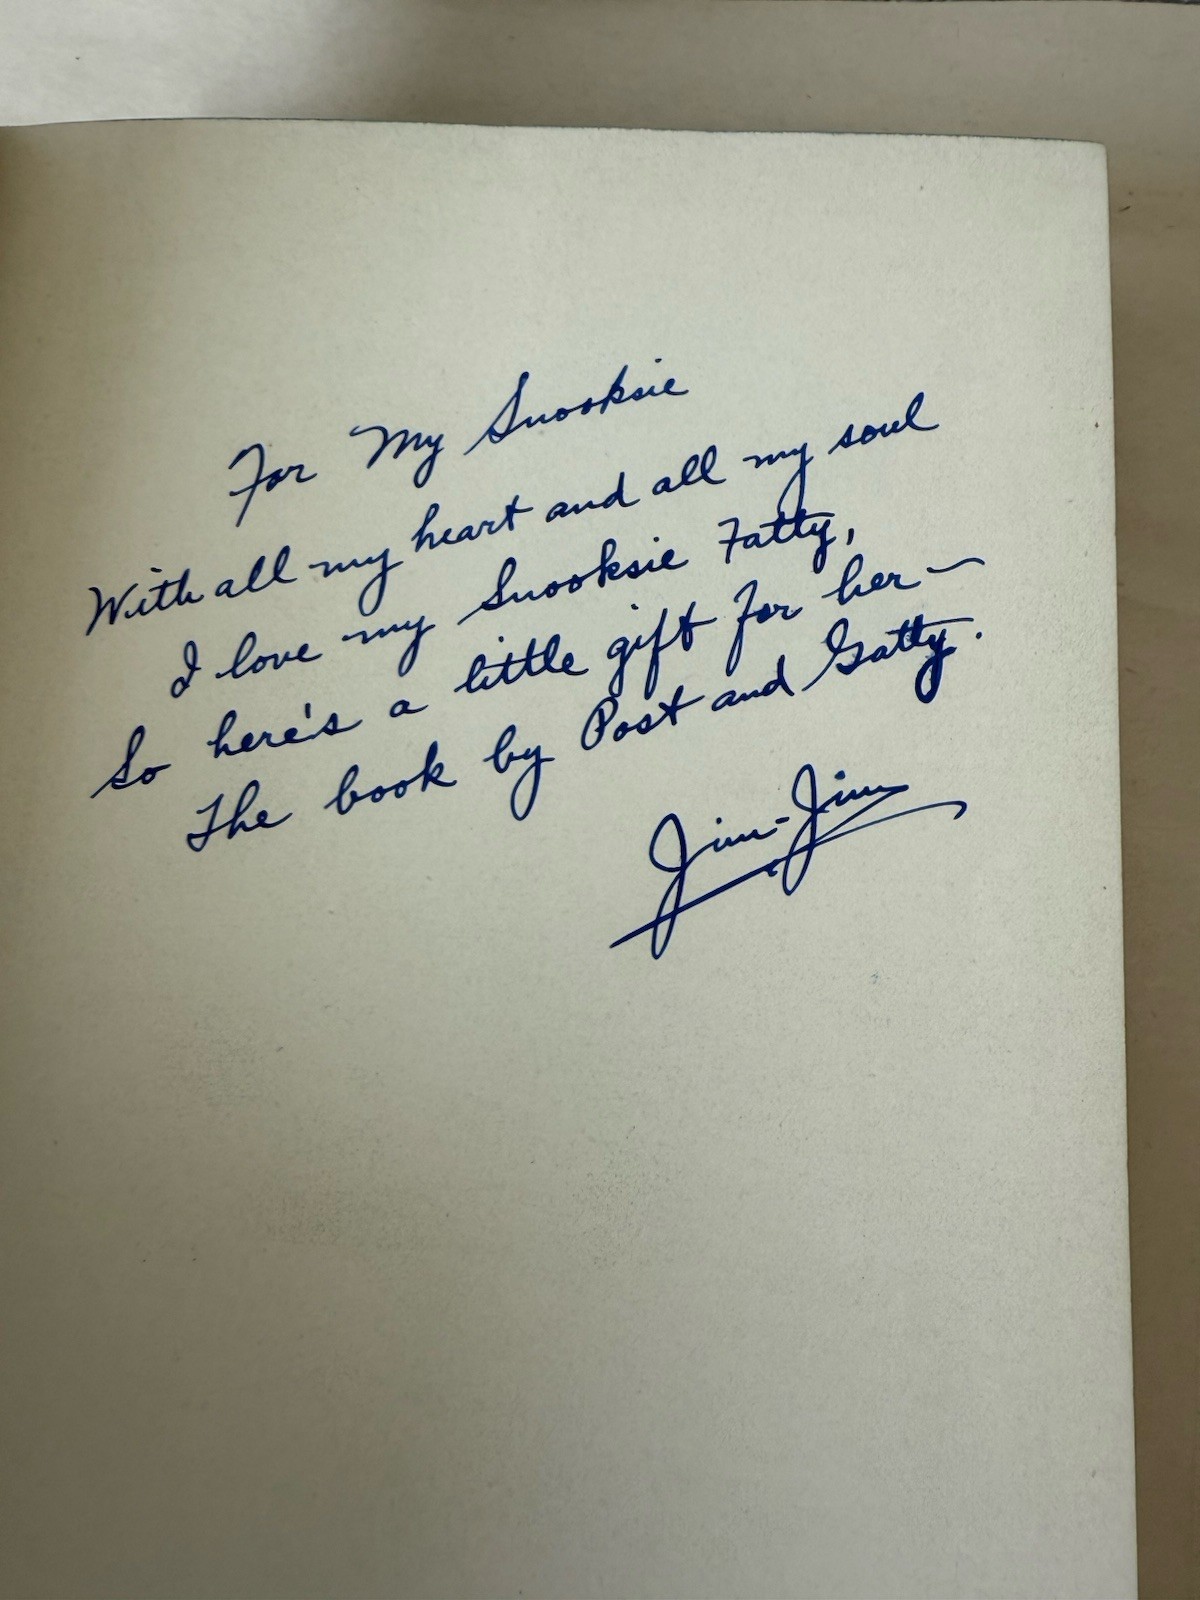 For My Snooksie
With all my heart and all my soul
I love my Snooksie Fatty,
So here's a little gift for her—
The book by Post and Gatty.
Jim-Jim